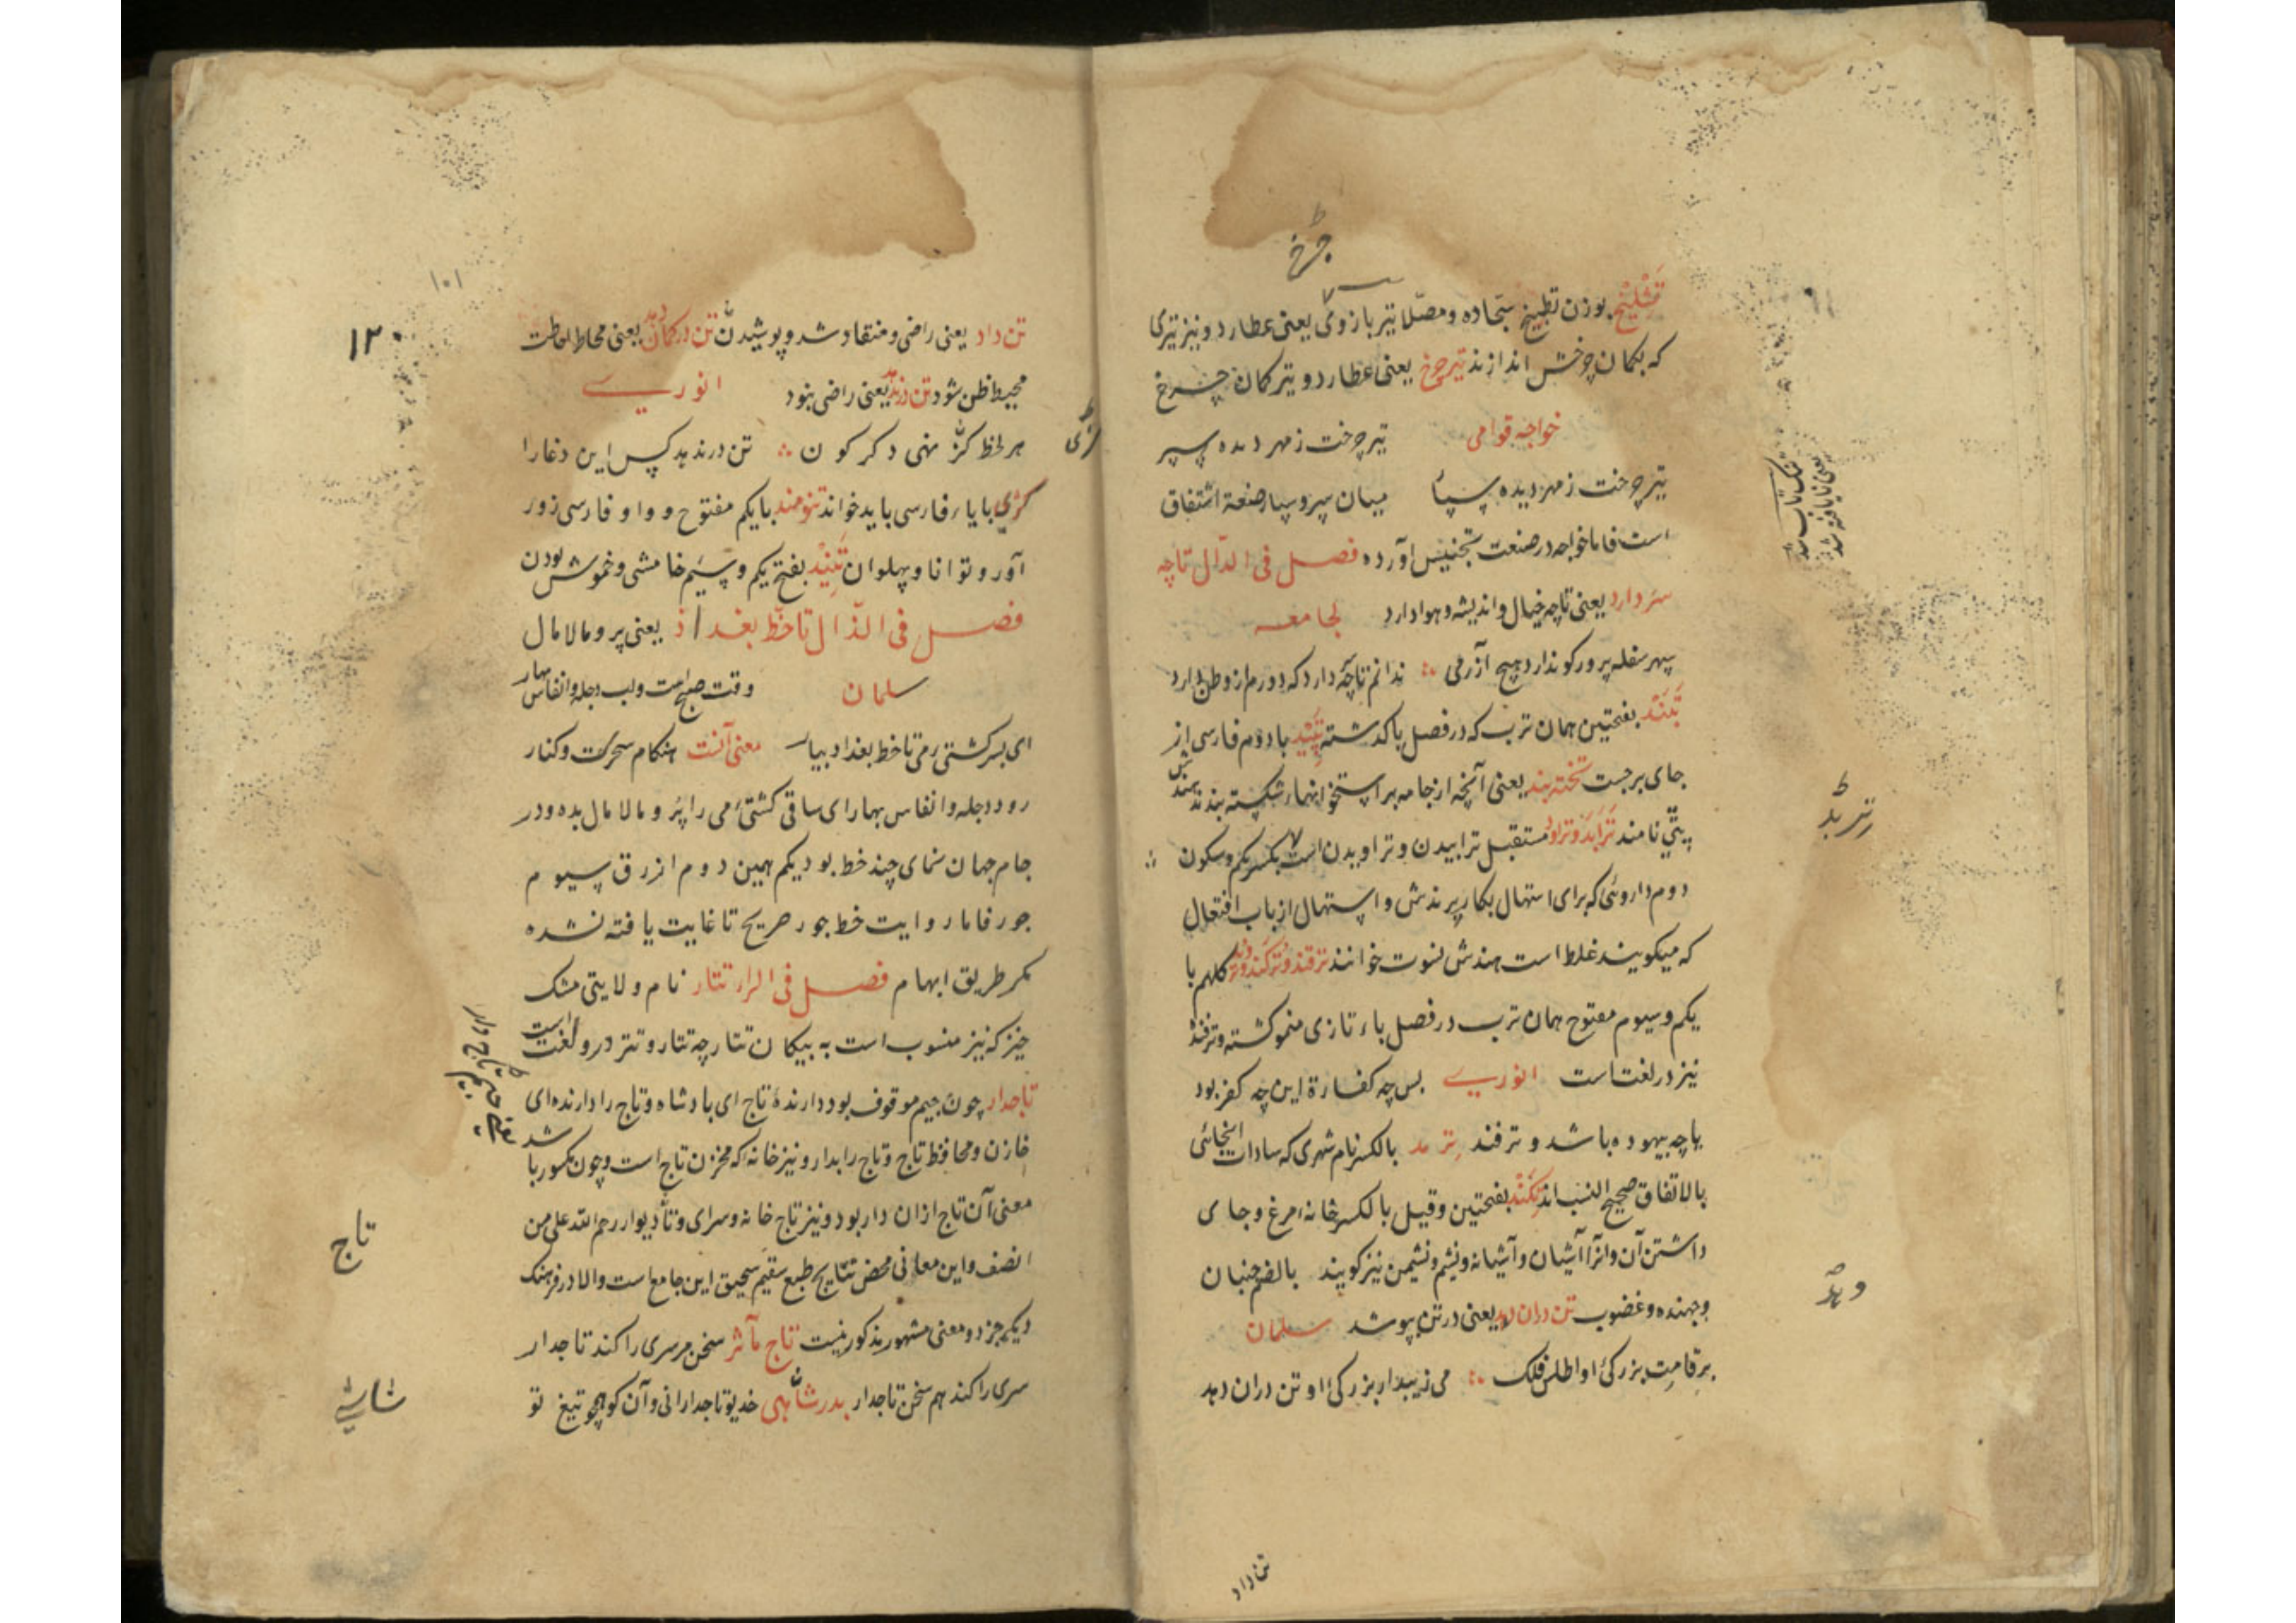 چرخ
تشلیخ بوزن تطبیخ سجاده و مصلا تیر بازوی یعنی عطارد و نیز تیری
که بکمان چرخش اندازند تیر چرخ یعنی عطارد و تیر کمان چرخ
خواجه قوامی تیر چرخت زمهر دیده سپر
تیر چرخت زمهر دیده سپار میان سپر و سپار صنعة اشتقاق
است فاما خواجه در صنعت تجنیس آورده فصل فی الدال تاچه
سر دارد یعنی تاچه خیال و اندیشه و هوا دارد لجامعه
سپهر سفله پرور کو ندارد هیچ آزرمی ندانم تاچه سر دارد که دورم از وطن دارد
تبند بفتحتین همان ترب که در فصل با کذشته تپید با دوم فارسی از
جای برجست تخته بند یعنی آنچه از جامه بر استخوانهاء شکسته بندند هندش
پتی نامند ترابد و تراود مستقبل ترابیدن و تراویدن است بکسر یکم و سکون
دوم داروئی که برای استهال بکار برندش و استهال از باب افتعال
که میکویند غلط است هندش لنوت خوانند ترقند و ترکند و کلهم با
یکم و سیوم مفتوح همان ترب در فصل باء تازی منمو کشته و ترفند
نیز در لغت است انوری بس چه کفارة این چه کفر بود
یا چه بیهوده باشد و ترفند ترمد بالکسر نام شهری که سادات اینجائی
بالاتفاق صحیح النسب اند تکند بفتحتین و قیل بالکسر خانهء مرغ و جای
داشتن آن و آنرا آشیان و آشیانه و نشیم و نشیمن نیز کویند بالضم جنبان
و جهنده و غضوب تن دران دهد یعنی در تن بپوشد سلمان
بر قامت بزرکئ او اطلس فلک می زیبد ار بزرکئ او تن دران دهد
تن داد
۱۲۰
۱۰۱
تن داد یعنی راضی و منقاد شد و پوشیدن تن در کمان دهد یعنی محاط احاطت
محیط ظن شود تن درندهد یعنی راضی بنود انوری
هر لحظه کژ منهی دکر کون تن در ندهد کس این دغا را
کژی با یاء فارسی باید خواند تنومند با یکم مفتوح و واو فارسی زور
آور و توانا و پهلوان تنید بفتح یکم و سیم خامشی و خموش بودن
فصل فی الذال تا خط بغداذ یعنی پر و مالامال
سلمان وقت صبح است و لب دجله و انفاس بهار
ای پسر کشتی می تا خط بغداد بیار معنی آنست هنکام سحر کت و کنار
رود دجله و انفاس بهار ای ساقی کشتئ می را پر و مالامال بده و در
جام جهان نمای چند خط بود یکم همین دوم ازرق سیوم
جور فاما روایت خط جور صریح تا غایت یافته نشده
مکر طریق ابهام فصل فی الرا تتار نام ولایتی مشک
خیز که نیز منسوب است به بیکان تتار چه تتار و تتر درو لغت است
تاجدار چون جیم موقوف بود دارندهٔ تاج ای بادشاه و تاج را دارنده ای
خازن و محافظ تاج و تاج را بدار و نیز خانه که مخزن تاج است و چون مکسور باشد
معنی آن تاج ازان دار بود و نیز تاج خانه و سرای و تا دیوار رحم الله علی من
انصف و این معانی محض نتایج طبع سقیم سحیق این جامع است والا در فرهنک
دیکر جز دو معنی مشهور مذکور نیست تاج مآثر سخن مر سری را کند تاجدار
سری را کند هم سخن تاجدار بدر شاشی خدیو تاجدارانی و آن کو همچو تیغ تو
تاج
شاشی